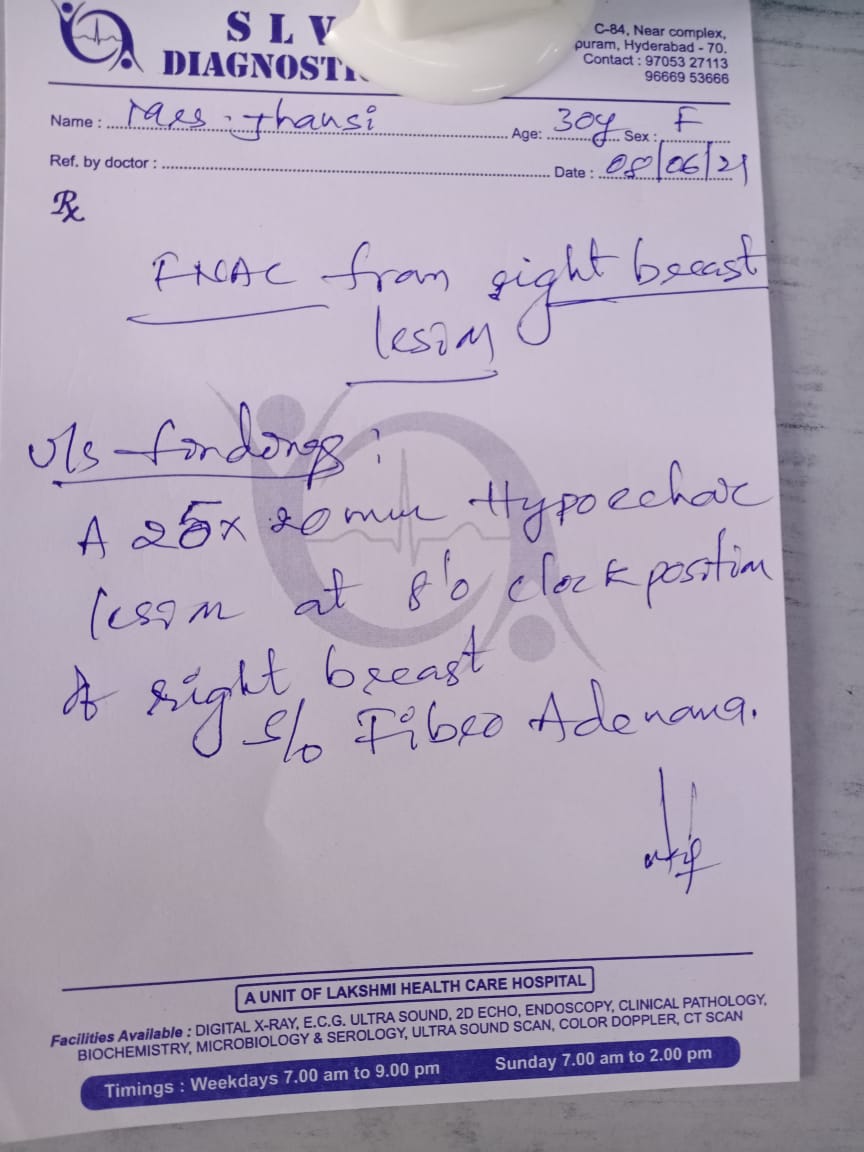 S L V
DIAGNOSTI
C-84, Near complex,
puram, Hyderabad - 70.
Contact : 97053 27113
96669 53666
Name : Mrs. Jhansi Age: 30y Sex : F
Ref. by doctor : Date : 08/06/21
Rx
FNAC from right breast
lesion
U/s findings :
A 25 x 20 mm Hypoechoic
lesion at 8'o clock position
of right breast
S/o Fibro Adenoma.
A UNIT OF LAKSHMI HEALTH CARE HOSPITAL
Facilities Available : DIGITAL X-RAY, E.C.G. ULTRA SOUND, 2D ECHO, ENDOSCOPY, CLINICAL PATHOLOGY,
BIOCHEMISTRY, MICROBIOLOGY & SEROLOGY, ULTRA SOUND SCAN, COLOR DOPPLER, CT SCAN
Timings : Weekdays 7.00 am to 9.00 pm Sunday 7.00 am to 2.00 pm